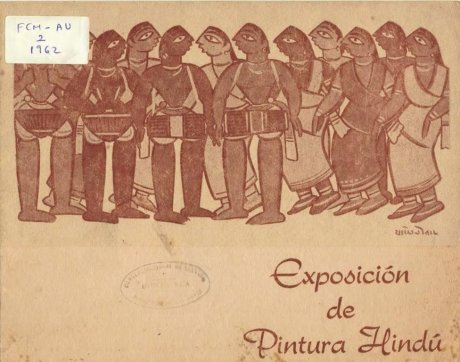 FCM-AU
2
1962
Exposición
de
Pintura Hindú